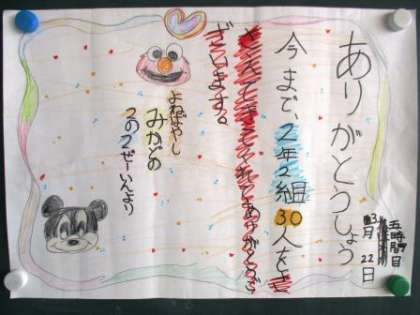 ありがとうしょう
五時間目
3月22日
今まで、2年2組30人をさ
さえてきてくれてありがとうご
ざいます。
よねばやし
みかどの
2の2ぜーいんより